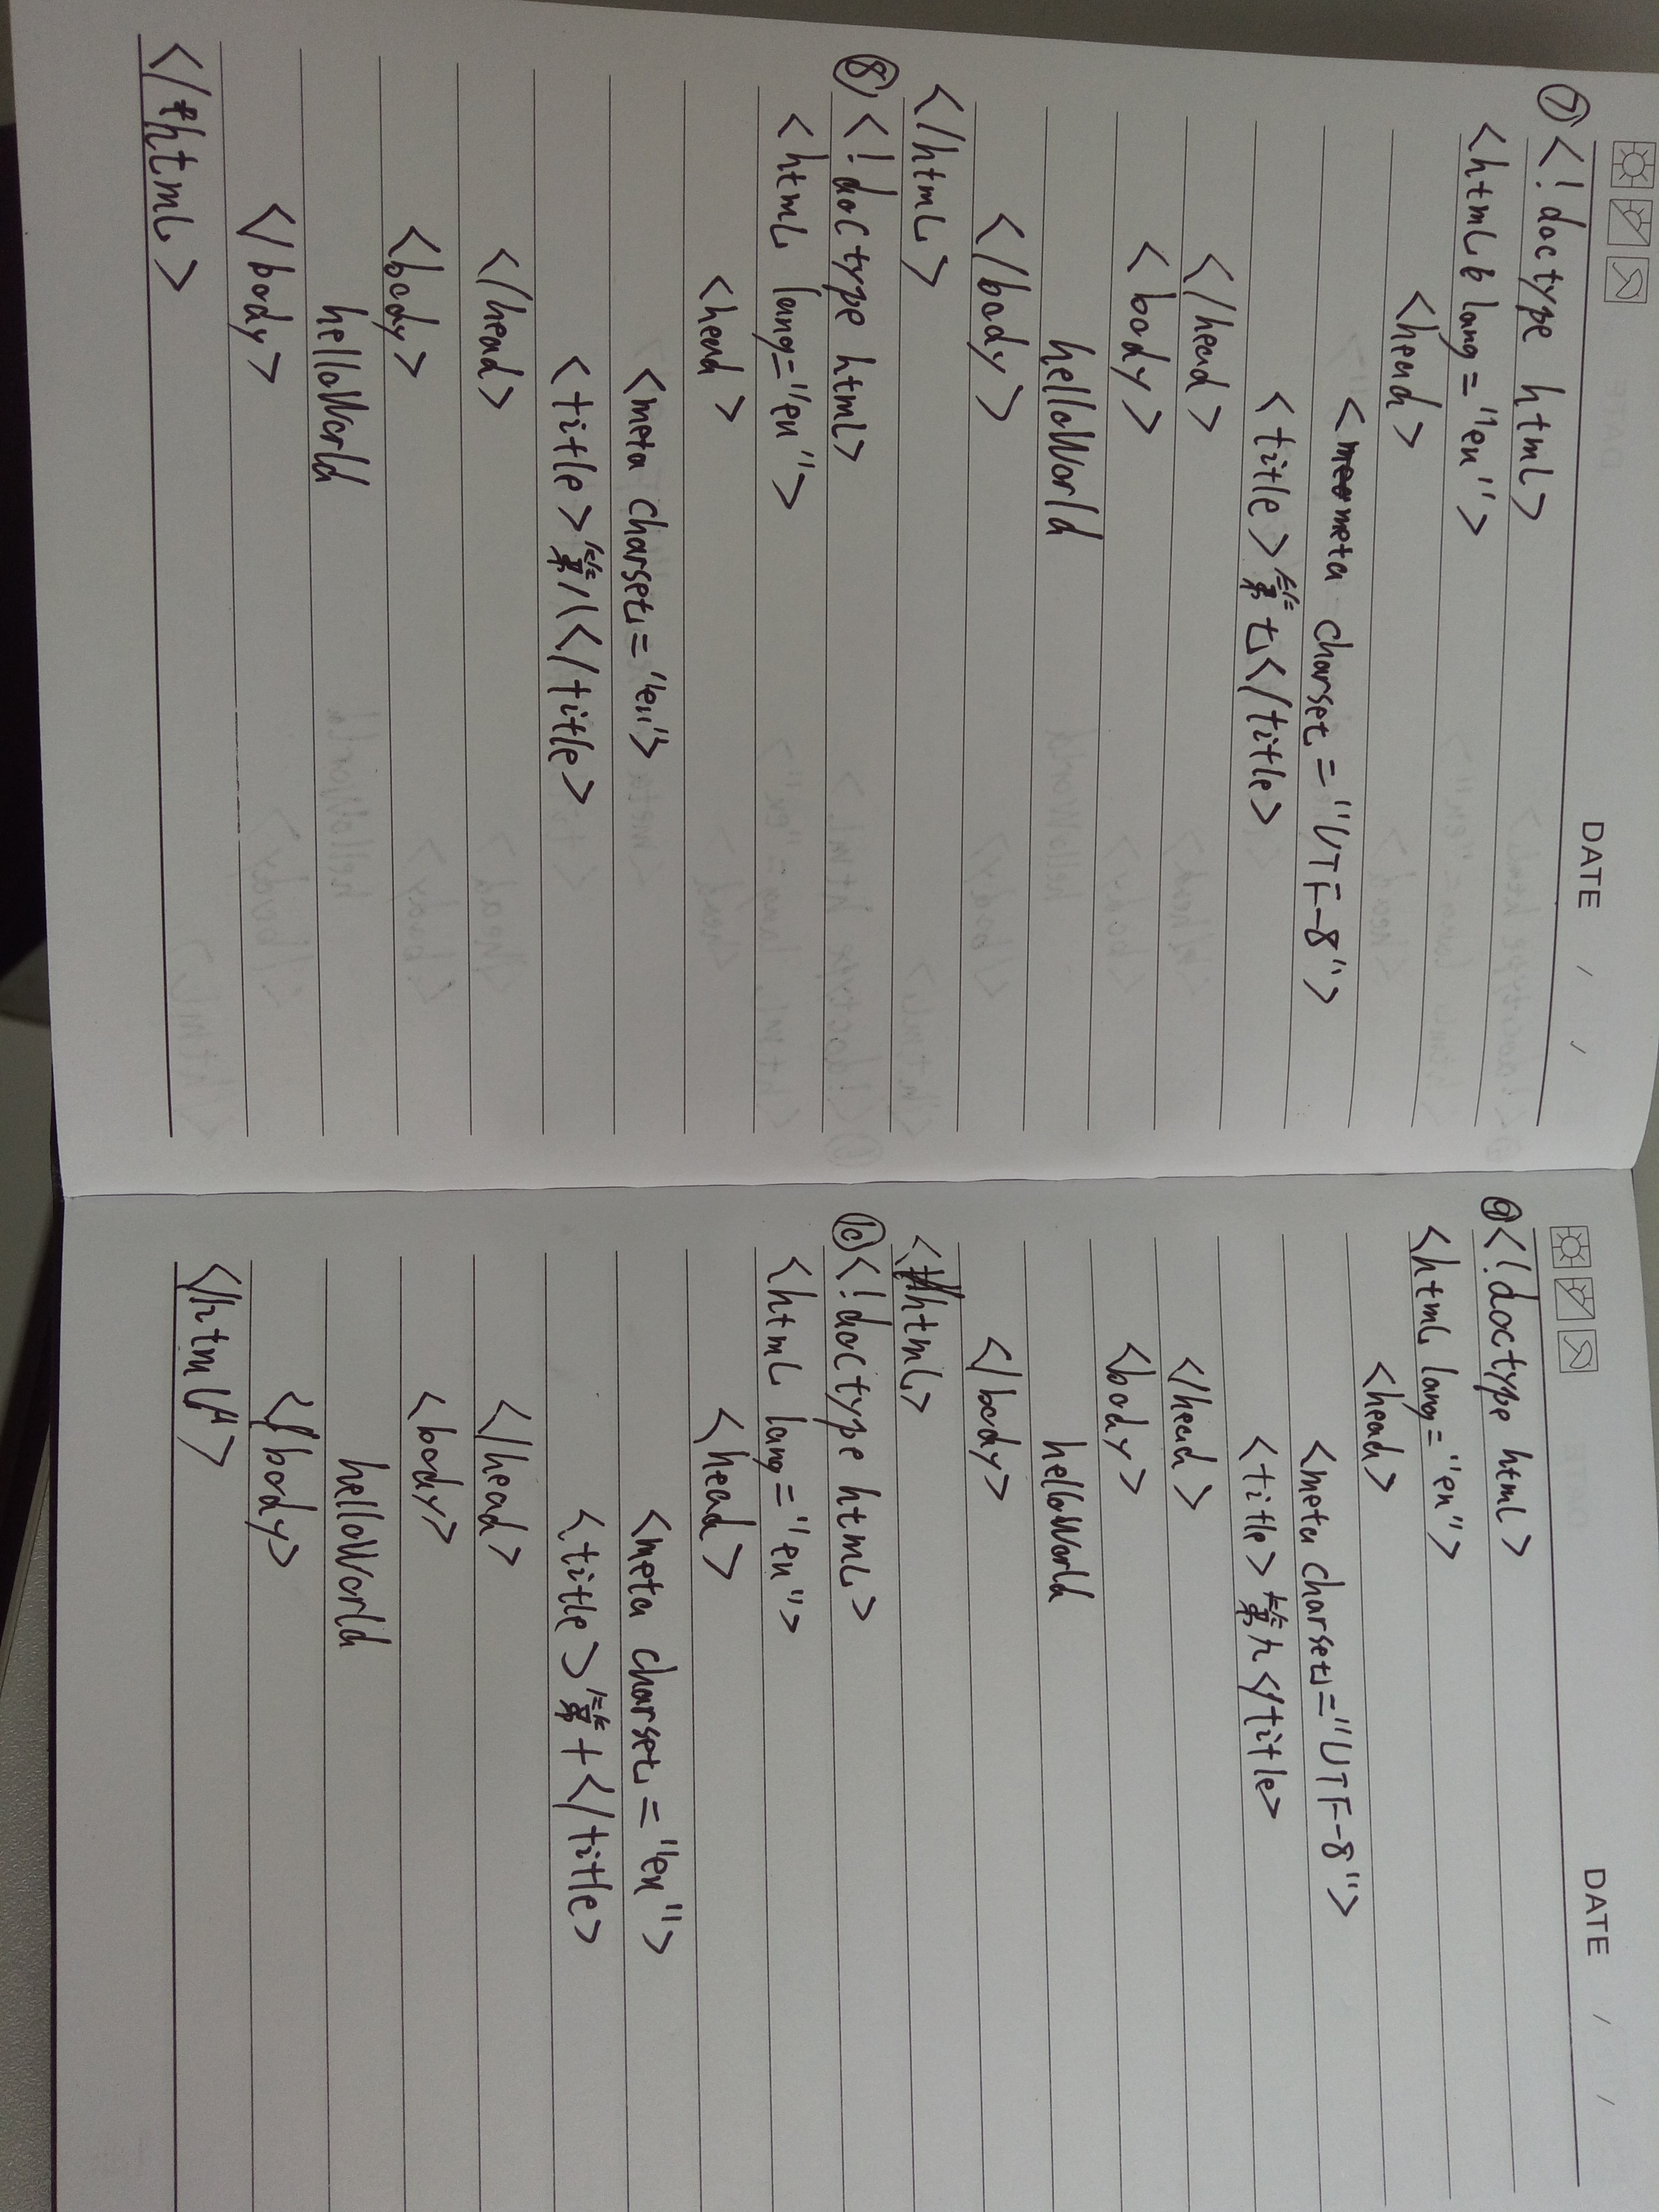 DATE / /
⑦<!doctype html>
<html lang="en">
<head>
<meta charset="UTF-8">
<title>第七</title>
</head>
<body>
helloWorld
</body>
</html>
⑧<!doctype html>
<html lang="en">
<head>
<meta charset="en">
<title>第八</title>
</head>
<body>
helloWorld
</body>
</html>
DATE / /
⑨<!doctype html>
<html lang="en">
<head>
<meta charset="UTF-8">
<title>第九</title>
</head>
<body>
helloWorld
</body>
</html>
⑩<!doctype html>
<html lang="en">
<head>
<meta charset="en">
<title>第十</title>
</head>
<body>
helloWorld
</body>
</html>